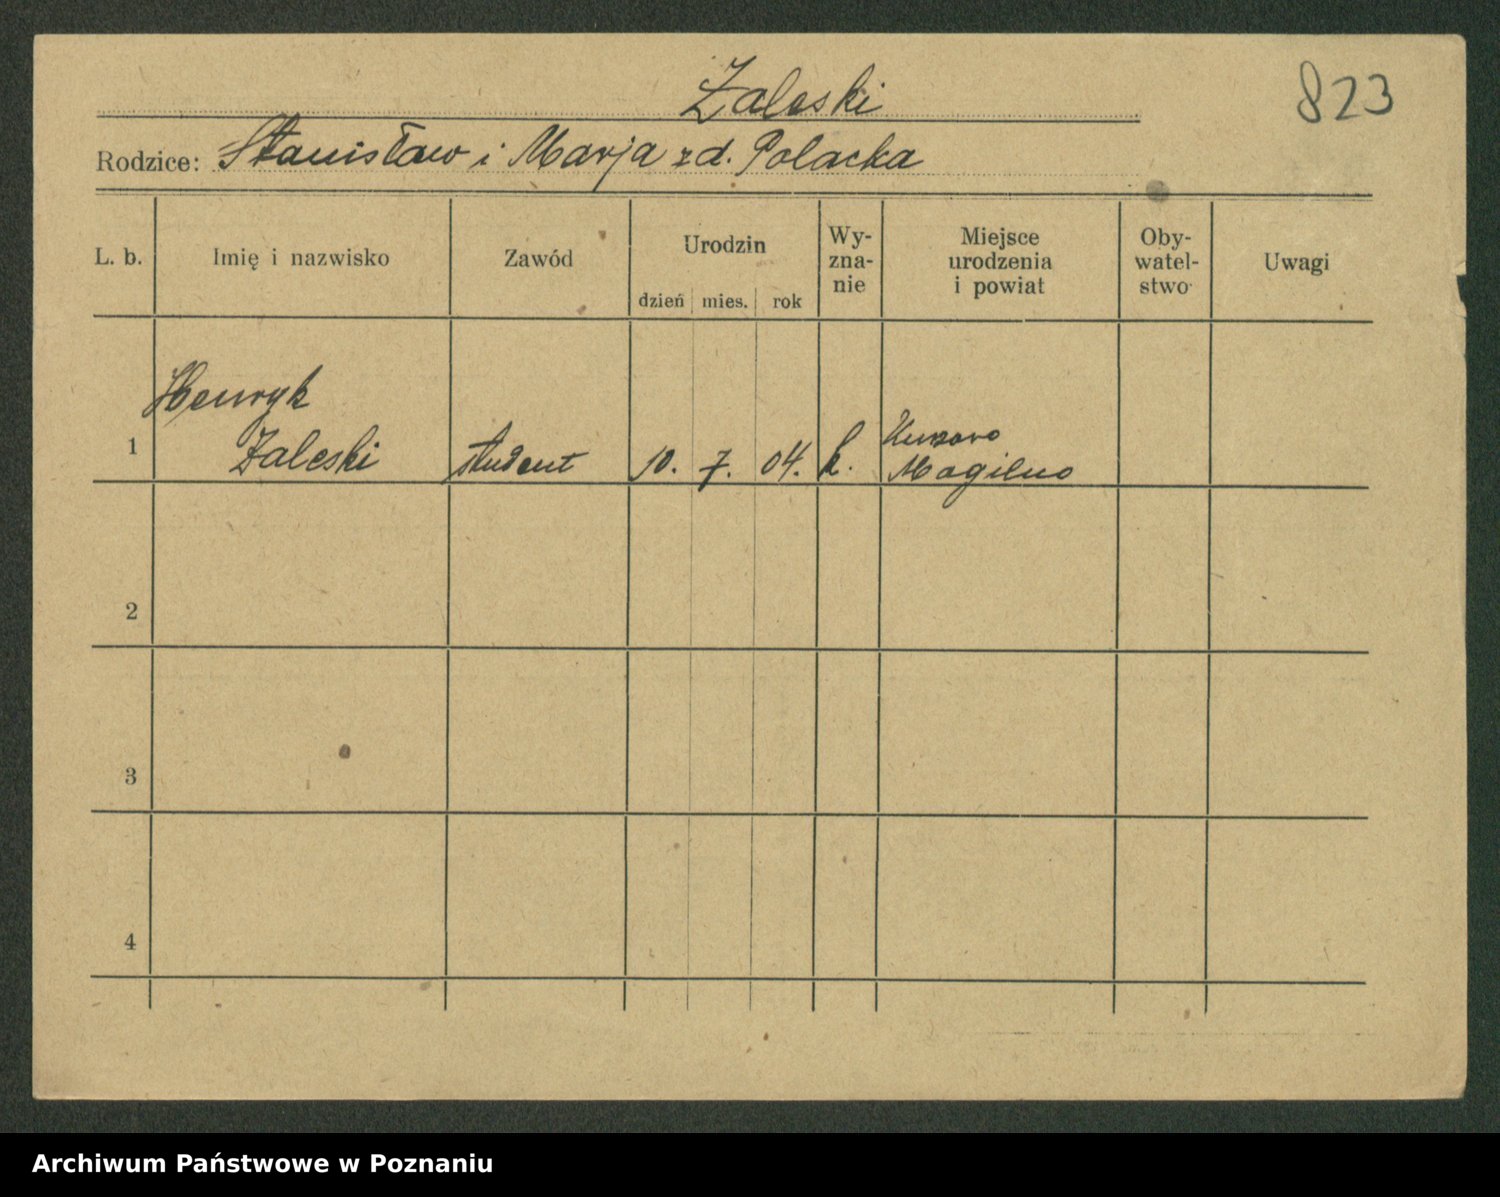 Zaleski
823
Rodzice: Stanisław i Marja zd. Polacka
L. b. Imię i nazwisko Zawód Urodzin Wy- Miejsce Oby- Uwagi
zna- urodzenia watel-
nie i powiat stwo
dzień mies. rok
Henryk
1 Zaleski student 10. 7. 04. k.
Mogilno
2
3
4
Archiwum Państwowe w Poznaniu